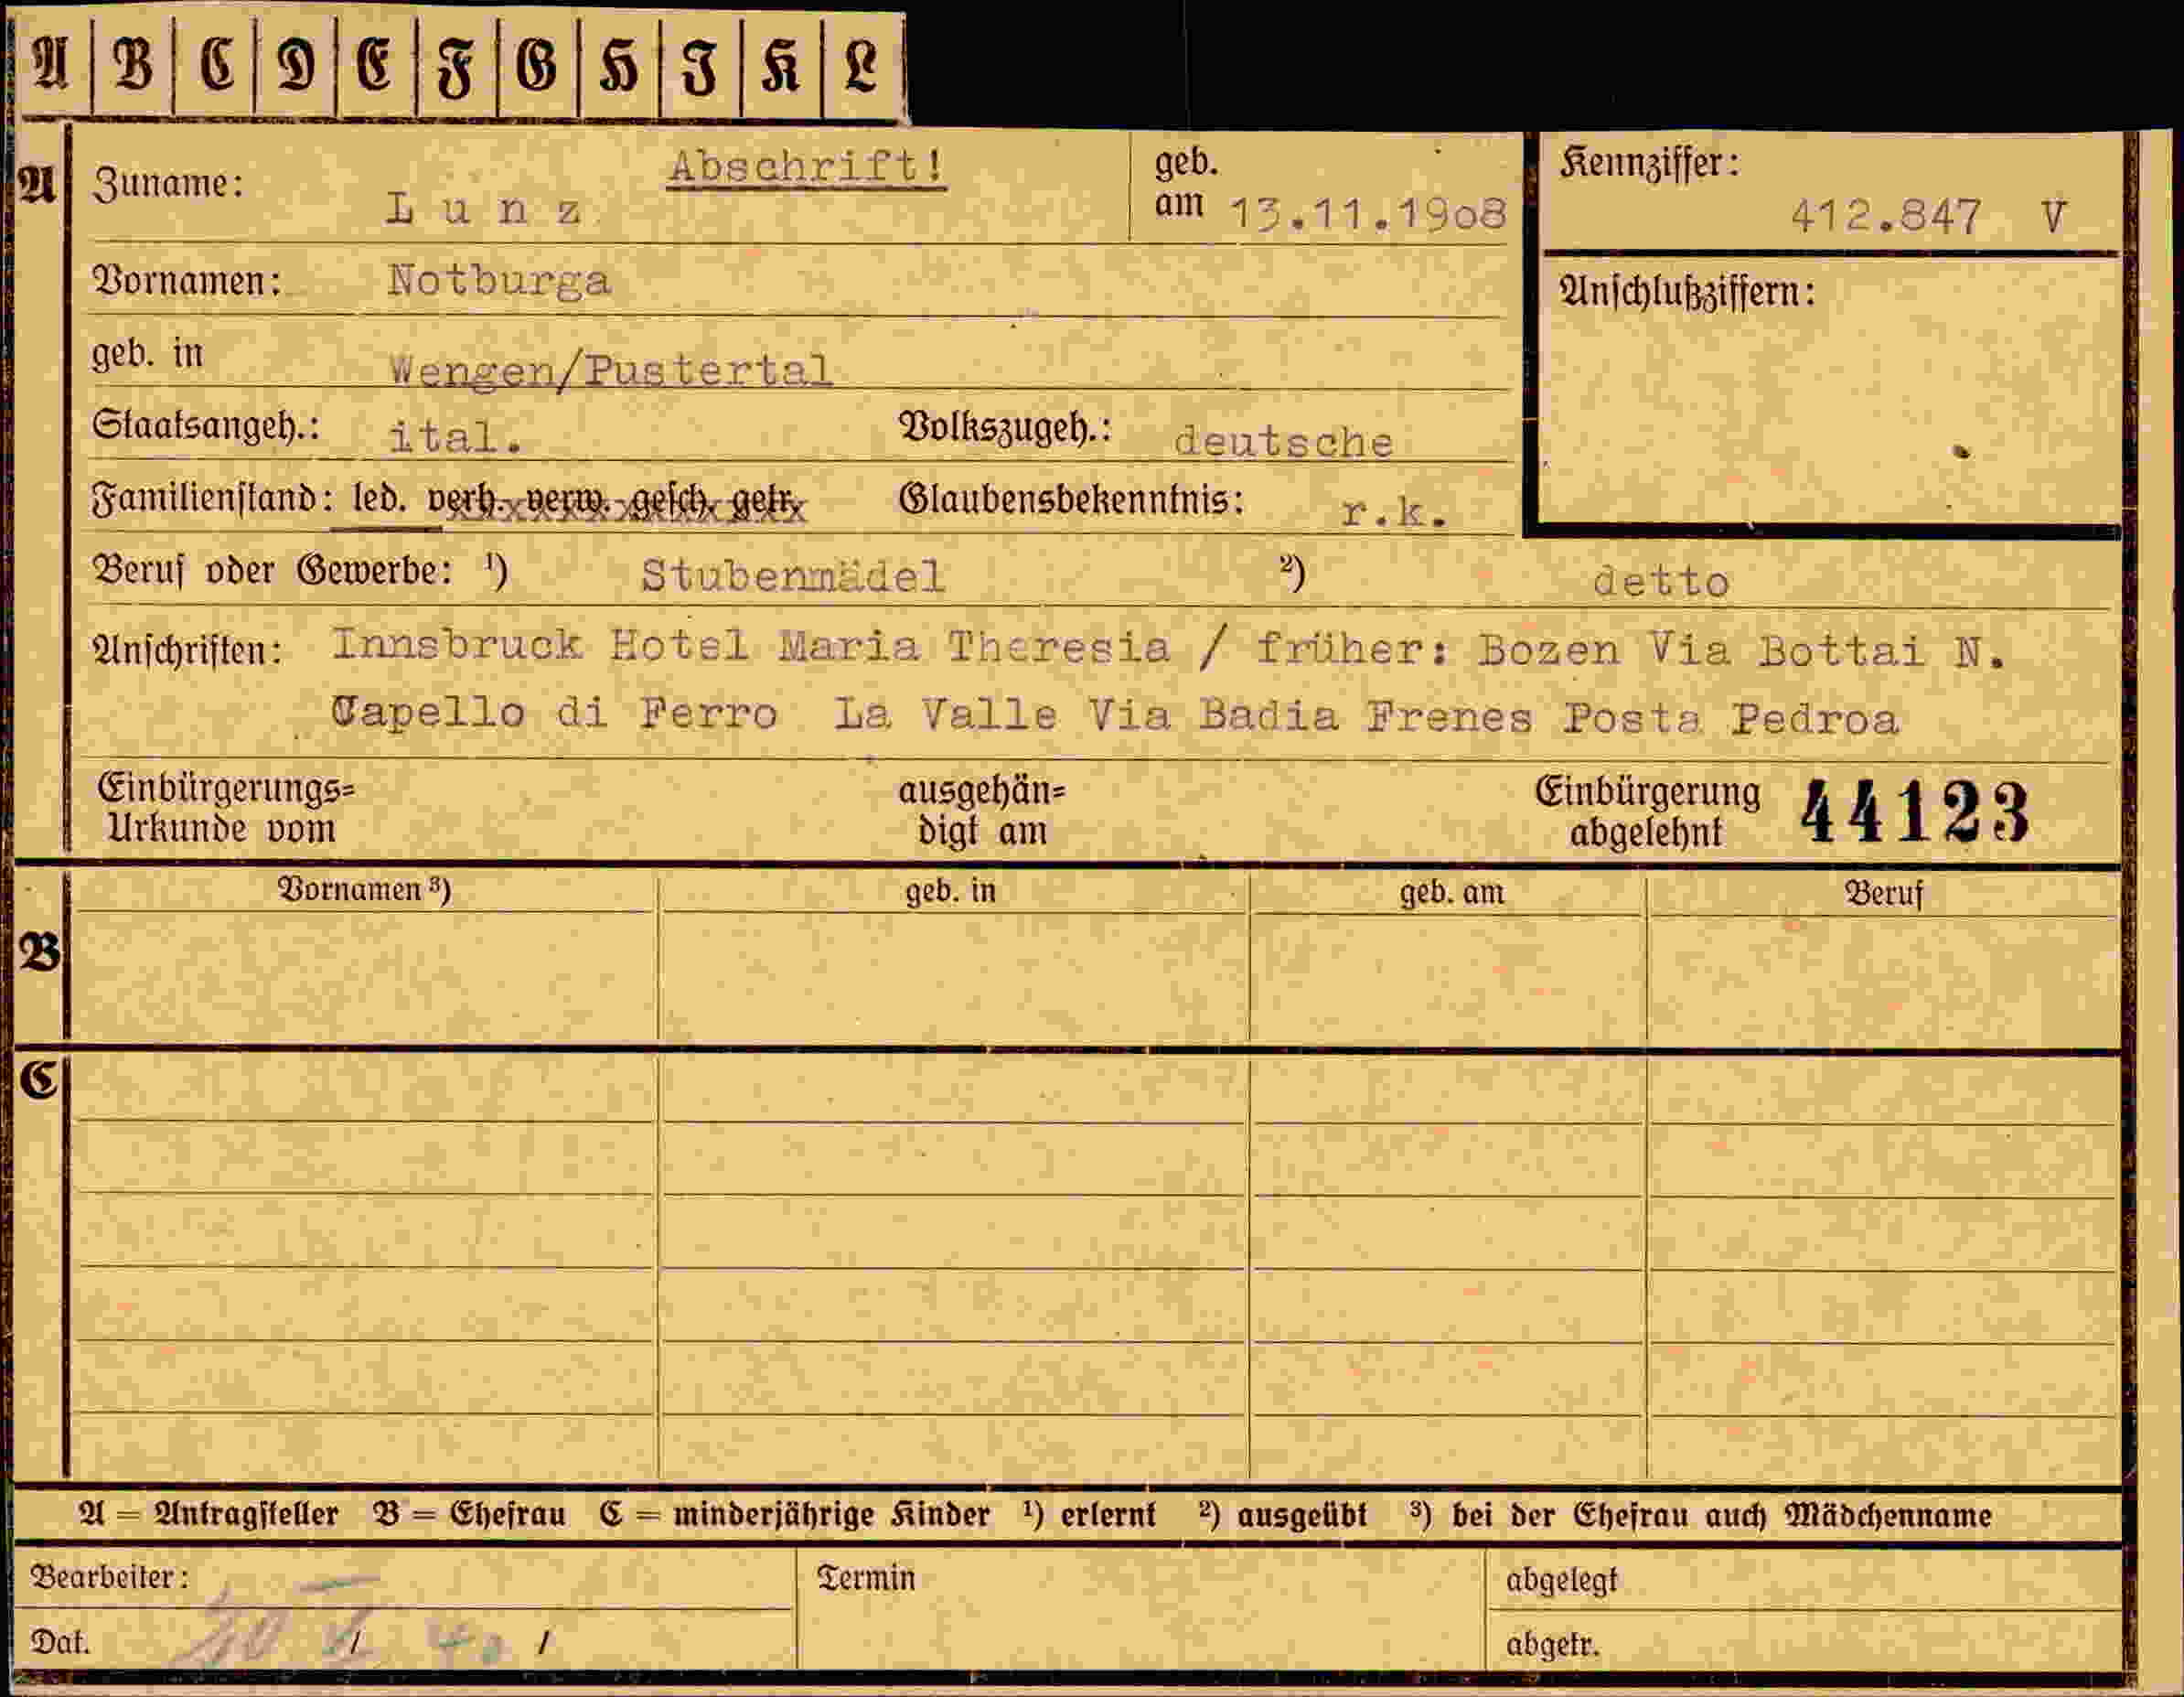 A B C D E F G H I K L
A Zuname: Lunz Abschrift! geb. am 13.11.1908 Kennziffer: 412.847 V
Vornamen: Notburga Anschlußziffern:
geb. in Wengen/Pustertal
Staatsangeh.: ital. Volkszugeh.: deutsche
Familienstand: led. verh. verw. gesch. getr. Glaubensbekenntnis: r.k.
Beruf oder Gewerbe: ¹) Stubenmädel ²) detto
Anschriften: Innsbruck Hotel Maria Theresia / früher: Bozen Via Bottai N.
Capello di Ferro La Valle Via Badia Frenes Posta Pedroa
Einbürgerungs= ausgehän= Einbürgerung 44123
Urkunde vom digt am abgelehnt
Vornamen ³) geb. in geb. am Beruf
B
C
A = Antragsteller B = Ehefrau C = minderjährige Kinder ¹) erlernt ²) ausgeübt ³) bei der Ehefrau auch Mädchenname
Bearbeiter: Termin abgelegt
Dat. abgetr.